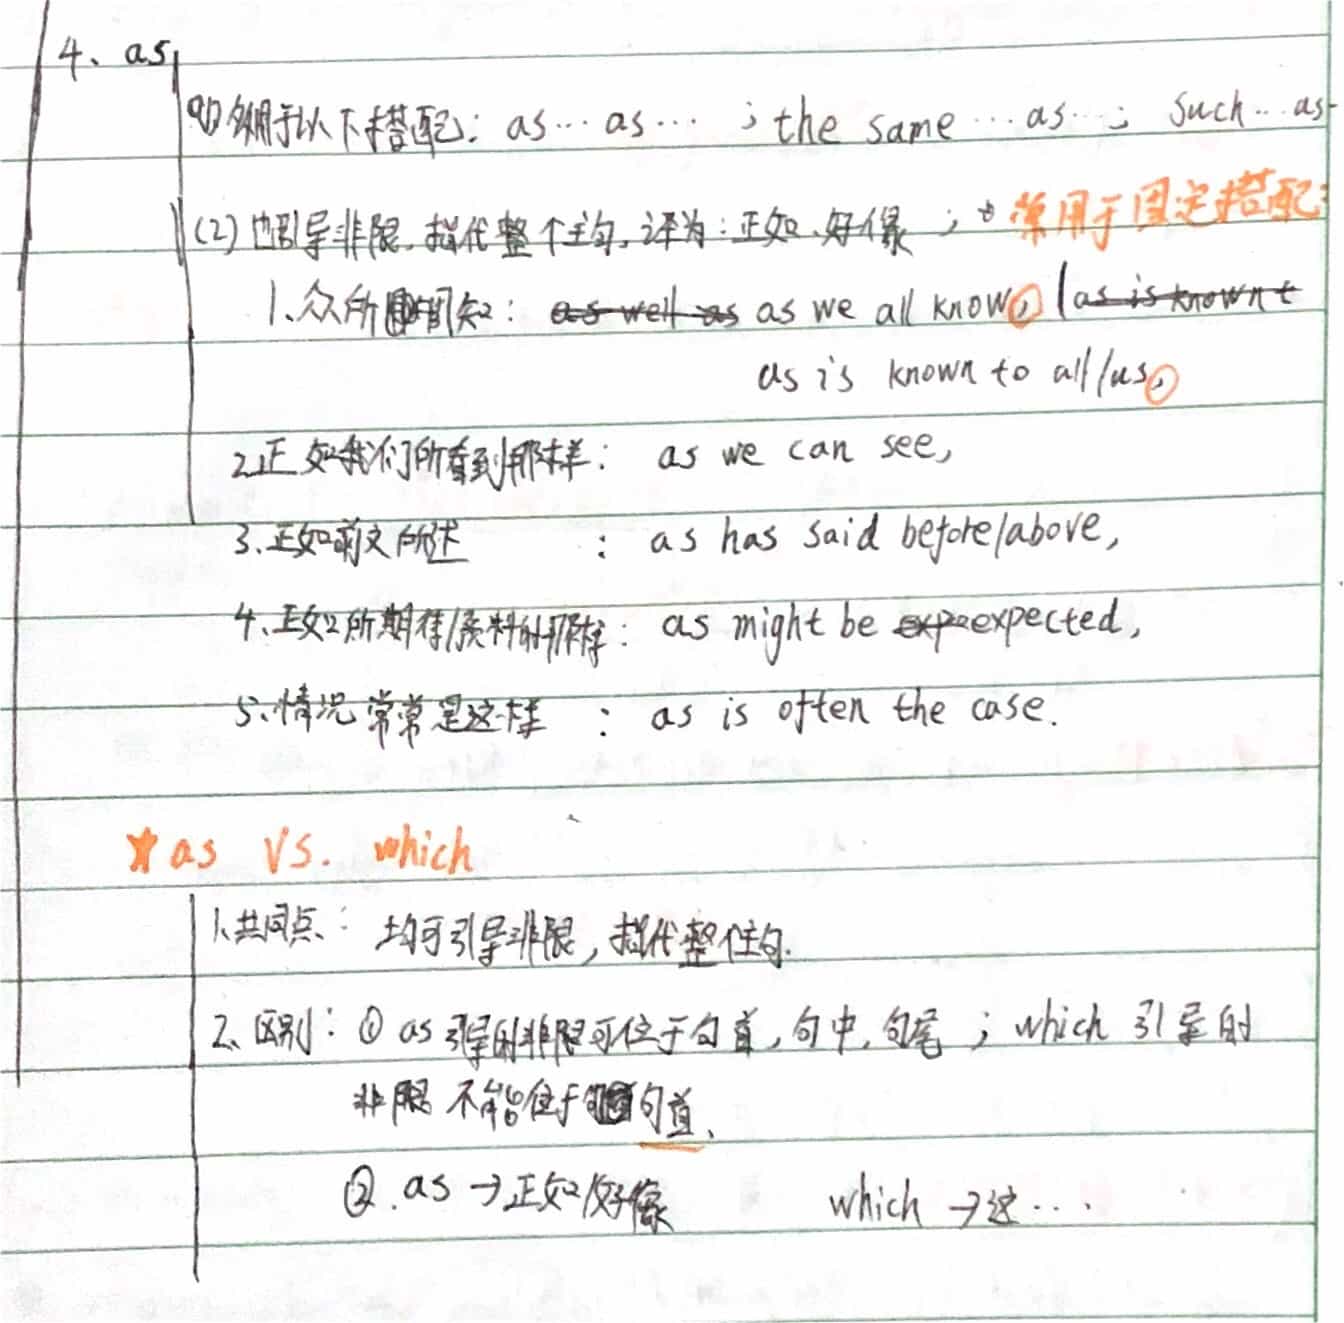 4、as
(1)多用于以下搭配: as…as… ; the same …as…; Such…as
(2)也引导非限,指代整个主句,译为:正如、好像 ; 常用于固定搭配:
1、众所周知: as well as as we all know, / as is known t
as is known to all/us,
2.正如我们所看到那样: as we can see,
3、正如前文所述 : as has said before/above,
4、正如所期待/预料的那样: as might be expe expected,
5、情况常常是这样 : as is often the case.
★as VS. which
1、共同点: 均可引导非限,指代整个主句.
2、区别:① as 引导的非限可位于句首,句中,句尾 ; which 引导的
非限 不能位于句首、
②.as→正如/好像 which →这…